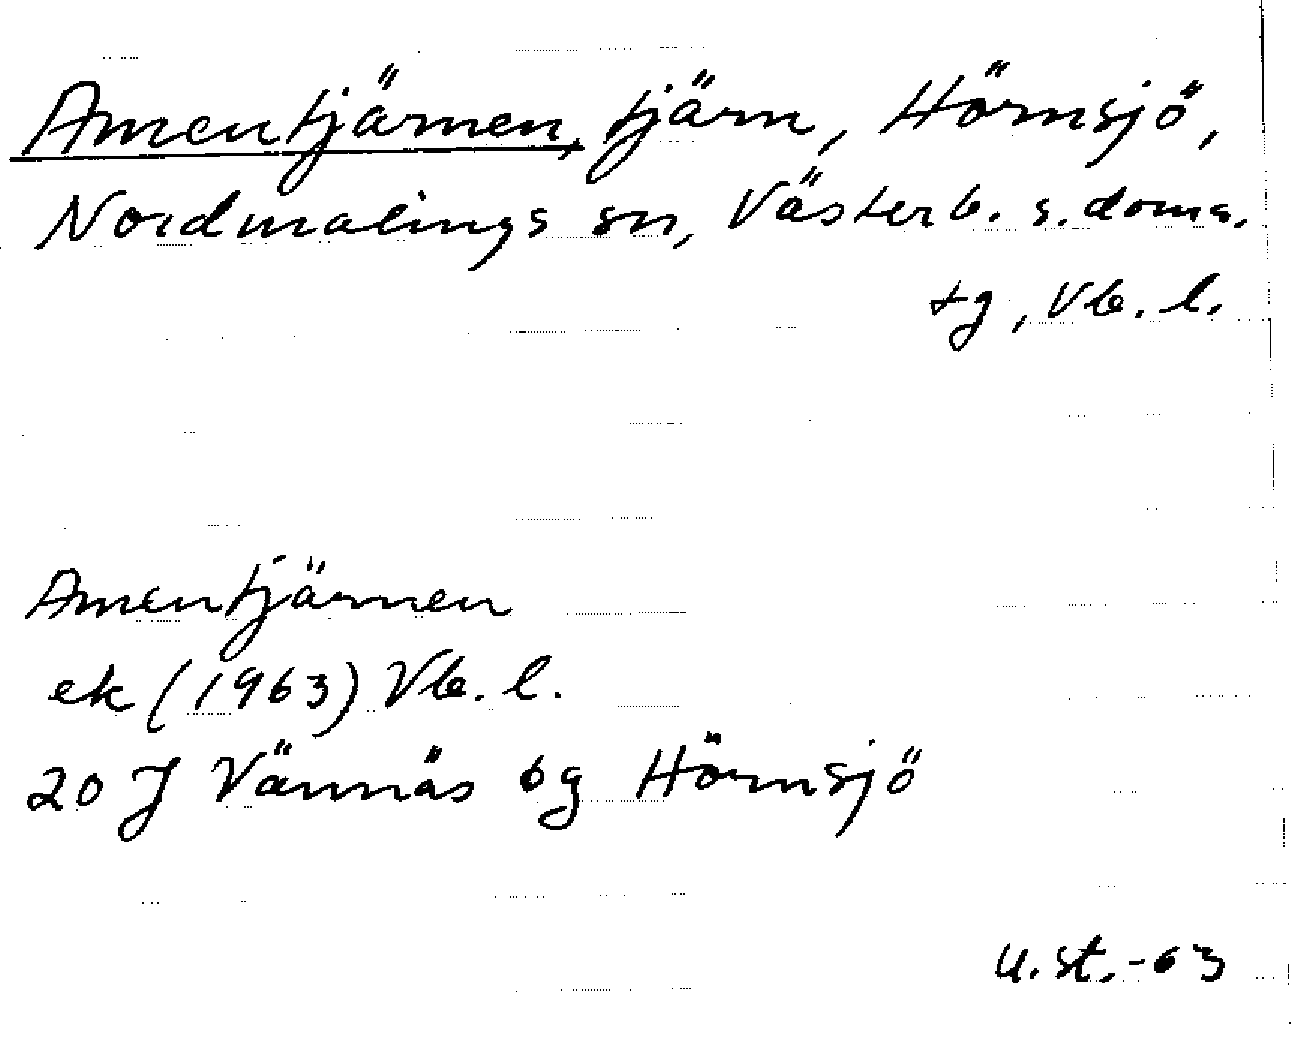 Amentjärnen, tjärn, Hörnsjö,
Nordmalings sn, Västerb. s. doms.
tg, Vb. l.
Amentjärnen
ek (1963) Vb. l.
20 J Vännäs 6g Hörnsjö
U. St. -63